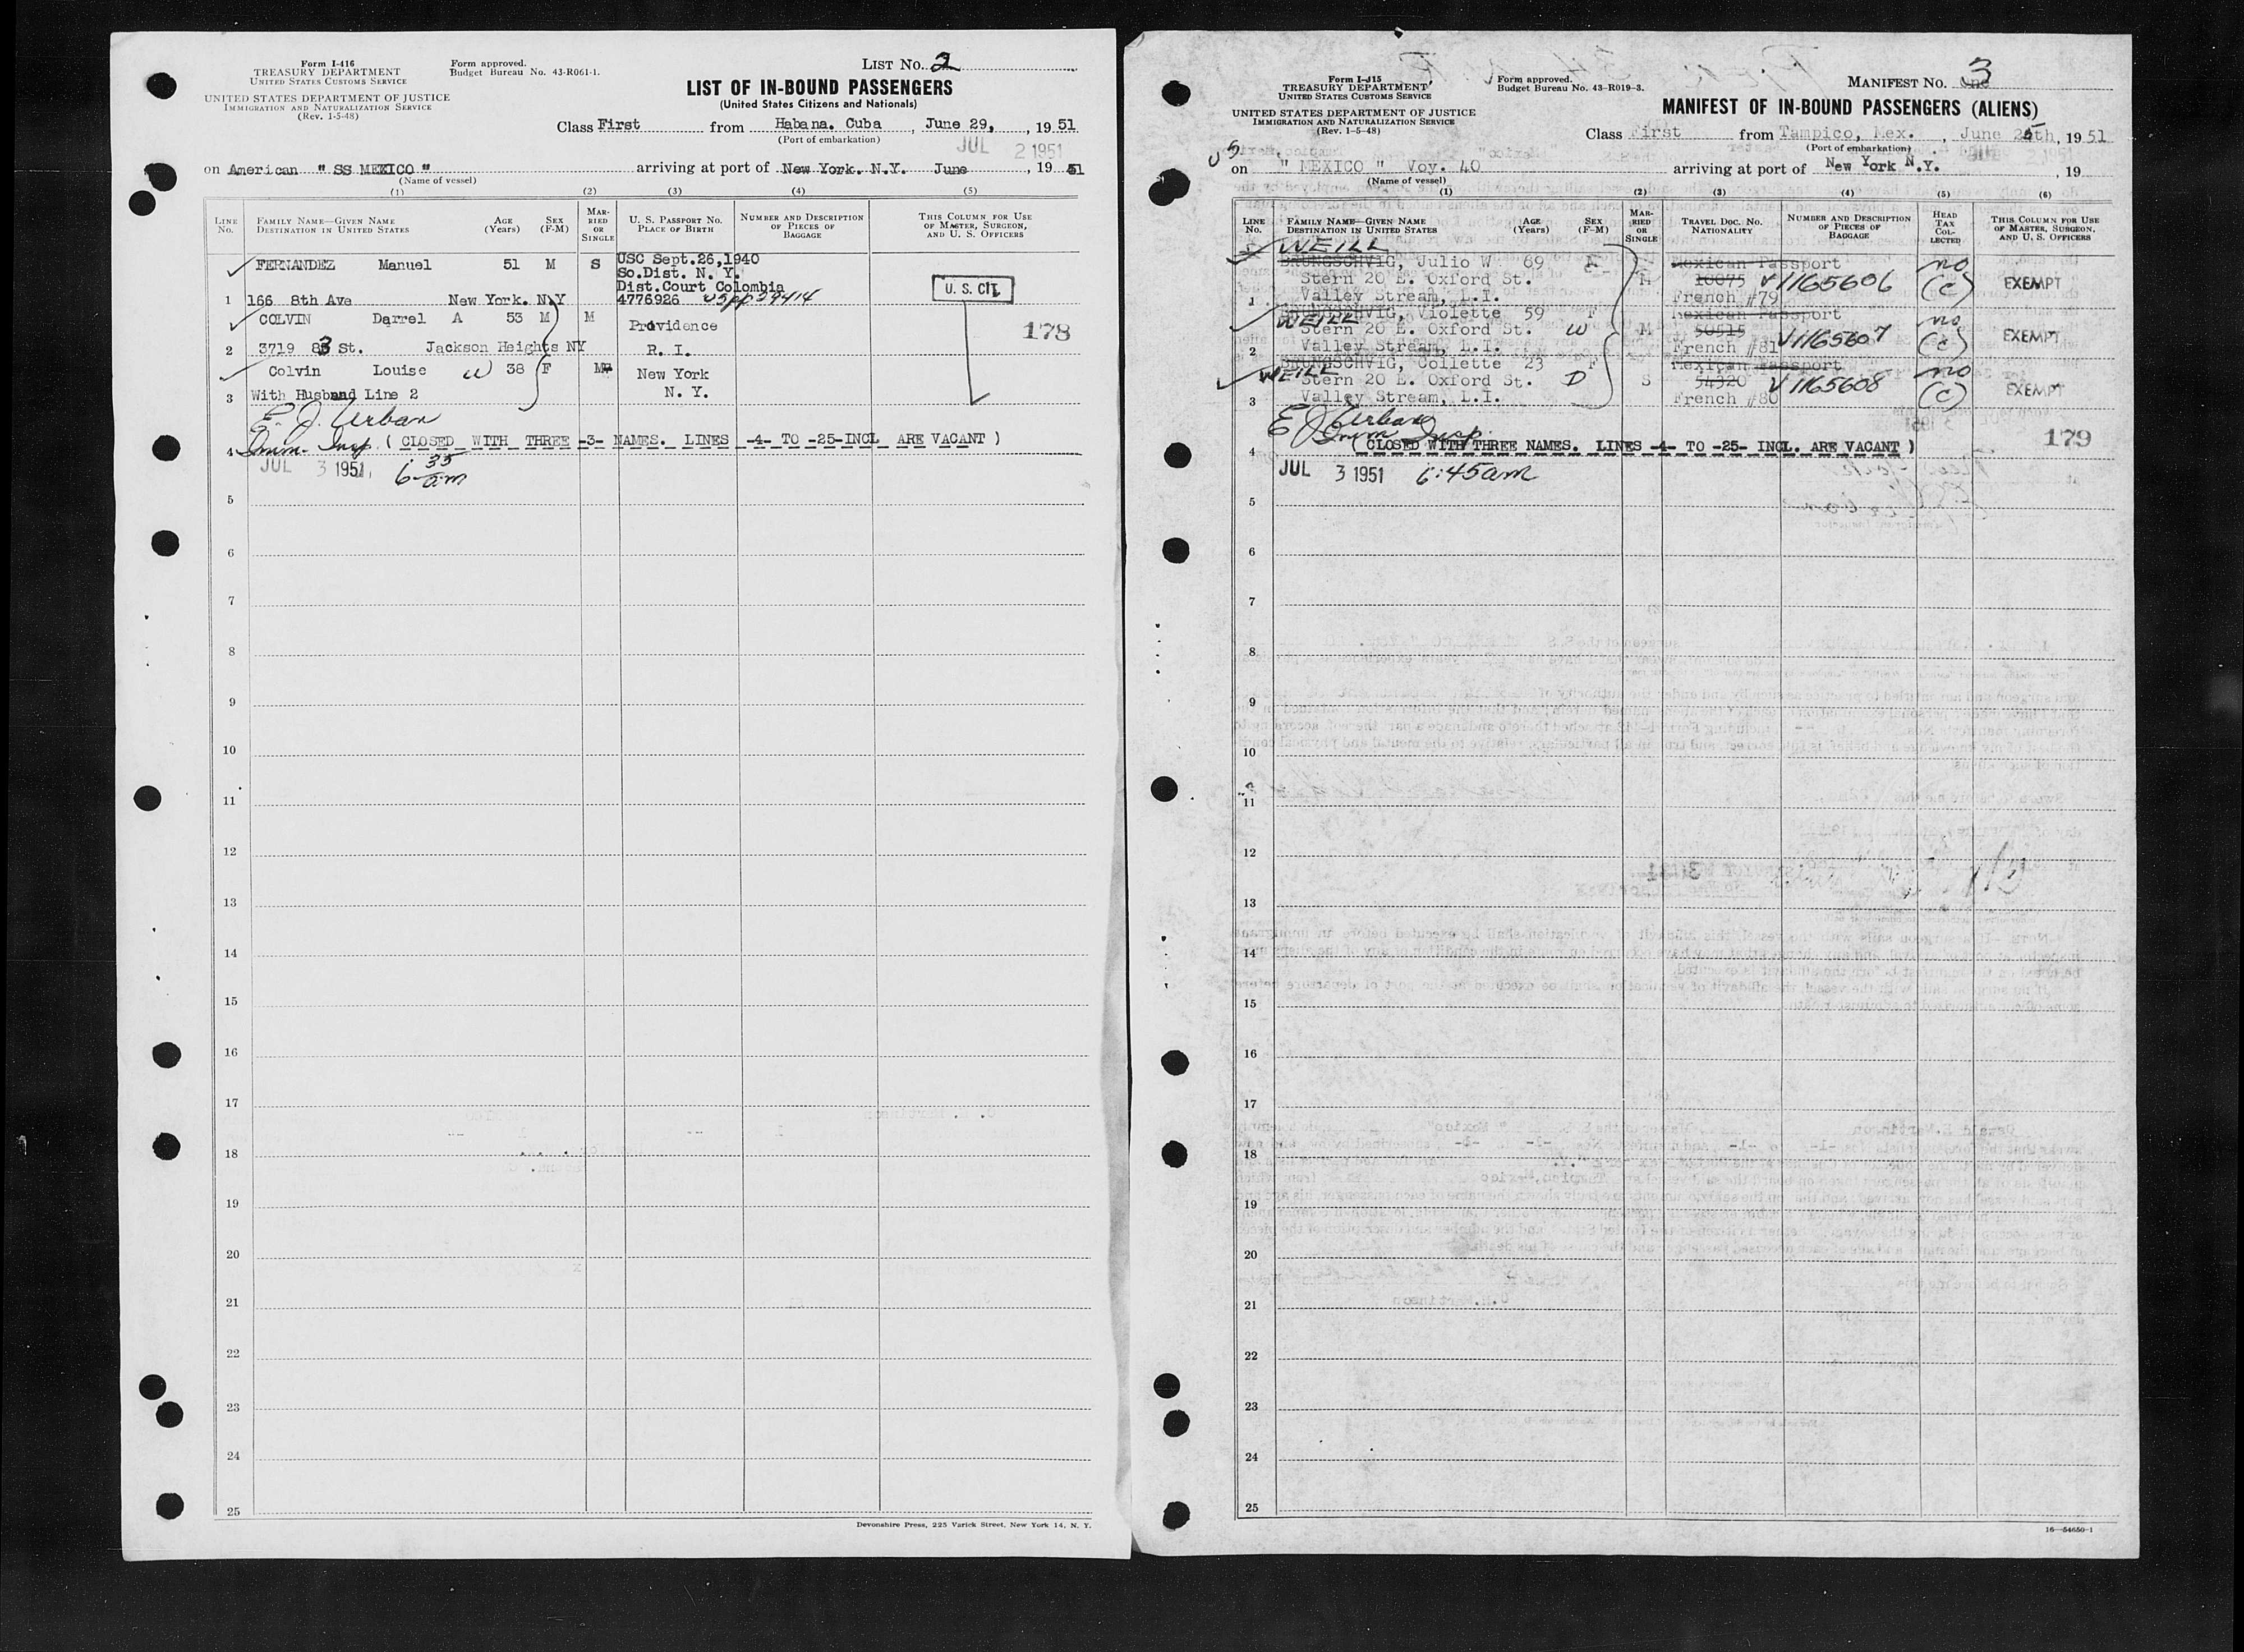 Form I-416
TREASURY DEPARTMENT
UNITED STATES CUSTOMS SERVICE
UNITED STATES DEPARTMENT OF JUSTICE
IMMIGRATION AND NATURALIZATION SERVICE
(Rev. 1-5-48)
Form approved.
Budget Bureau No. 43-R061-1.
LIST NO. 2
LIST OF IN-BOUND PASSENGERS
(United States Citizens and Nationals)
Class First from Habana. Cuba , June 29, , 19 51
(Port of embarkation)
JUL 2 1951
on American " SS MEXICO " arriving at port of New York. N.Y. June , 19 51
(Name of vessel)
(1) (2) (3) (4) (5)
LINE No. FAMILY NAME—GIVEN NAME DESTINATION IN UNITED STATES AGE (Years) SEX (F-M) MARRIED OR SINGLE U. S. PASSPORT NO. PLACE OF BIRTH NUMBER AND DESCRIPTION OF PIECES OF BAGGAGE THIS COLUMN FOR USE OF MASTER, SURGEON, AND U. S. OFFICERS
FERNANDEZ Manuel 51 M S USC Sept.26,1940
So.Dist. N. Y.
Dist.Court Colombia
1 166 8th Ave New York. N Y 4776926 USpp29414 U. S. CIT.
COLVIN Darrel A 53 M M Providence 178
2 3719 83 St. Jackson Heights NY R. I.
Colvin Louise W 38 F M New York
3 With Husband Line 2 N. Y.
E. J. Urban
4 Imm. Insp. ( CLOSED WITH THREE -3- NAMES. LINES -4- TO -25-INCL ARE VACANT )
JUL 3 1951, 6 35 am
5
6
7
8
9
10
11
12
13
14
15
16
17
18
19
20
21
22
23
24
25
Devonshire Press, 225 Varick Street, New York 14, N. Y.
Form I-415
TREASURY DEPARTMENT
UNITED STATES CUSTOMS SERVICE
UNITED STATES DEPARTMENT OF JUSTICE
IMMIGRATION AND NATURALIZATION SERVICE
(Rev. 1-5-48)
Form approved.
Budget Bureau No. 43-R019-3.
MANIFEST NO. One 3
MANIFEST OF IN-BOUND PASSENGERS (ALIENS)
Class First from Tampico, Mex. , June 25th, 19 51
(Port of embarkation)
US
on " MEXICO " Voy. 40 arriving at port of New York N.Y. , 19
(Name of vessel)
(1) (2) (3) (4) (5) (6)
LINE No. FAMILY NAME—GIVEN NAME DESTINATION IN UNITED STATES AGE (Years) SEX (F-M) MARRIED OR SINGLE TRAVEL DOC. NO. NATIONALITY NUMBER AND DESCRIPTION OF PIECES OF BAGGAGE HEAD TAX COLLECTED THIS COLUMN FOR USE OF MASTER, SURGEON, AND U. S. OFFICERS
WEILL
BRUNGSCHVIG, Julio W 69 Mexican Passport no
Stern 20 E. Oxford St. M 10075 V1165606 (C) EXEMPT
1 Valley Stream, L.I. French #79
BRUNGSCHVIG, Violette 59 F Mexican Passport no
WEILL
Stern 20 E. Oxford St. W M 50515 V1165607 (C) EXEMPT
2 Valley Stream, L.I. French #81
BRUNGSCHVIG, Collette 23 F Mexican Passport no
WEILL
Stern 20 E. Oxford St. D S 54320 V1165608 (C) EXEMPT
3 Valley Stream, L.I. French #80
E J Urban
Imm Insp. 179
4 ( CLOSED WITH THREE NAMES. LINES -4- TO -25- INCL. ARE VACANT )
JUL 3 1951 6:45am
5
6
7
8
9
10
11
12
13
14
15
16
17
18
19
20
21
22
23
24
25
16—54650-1